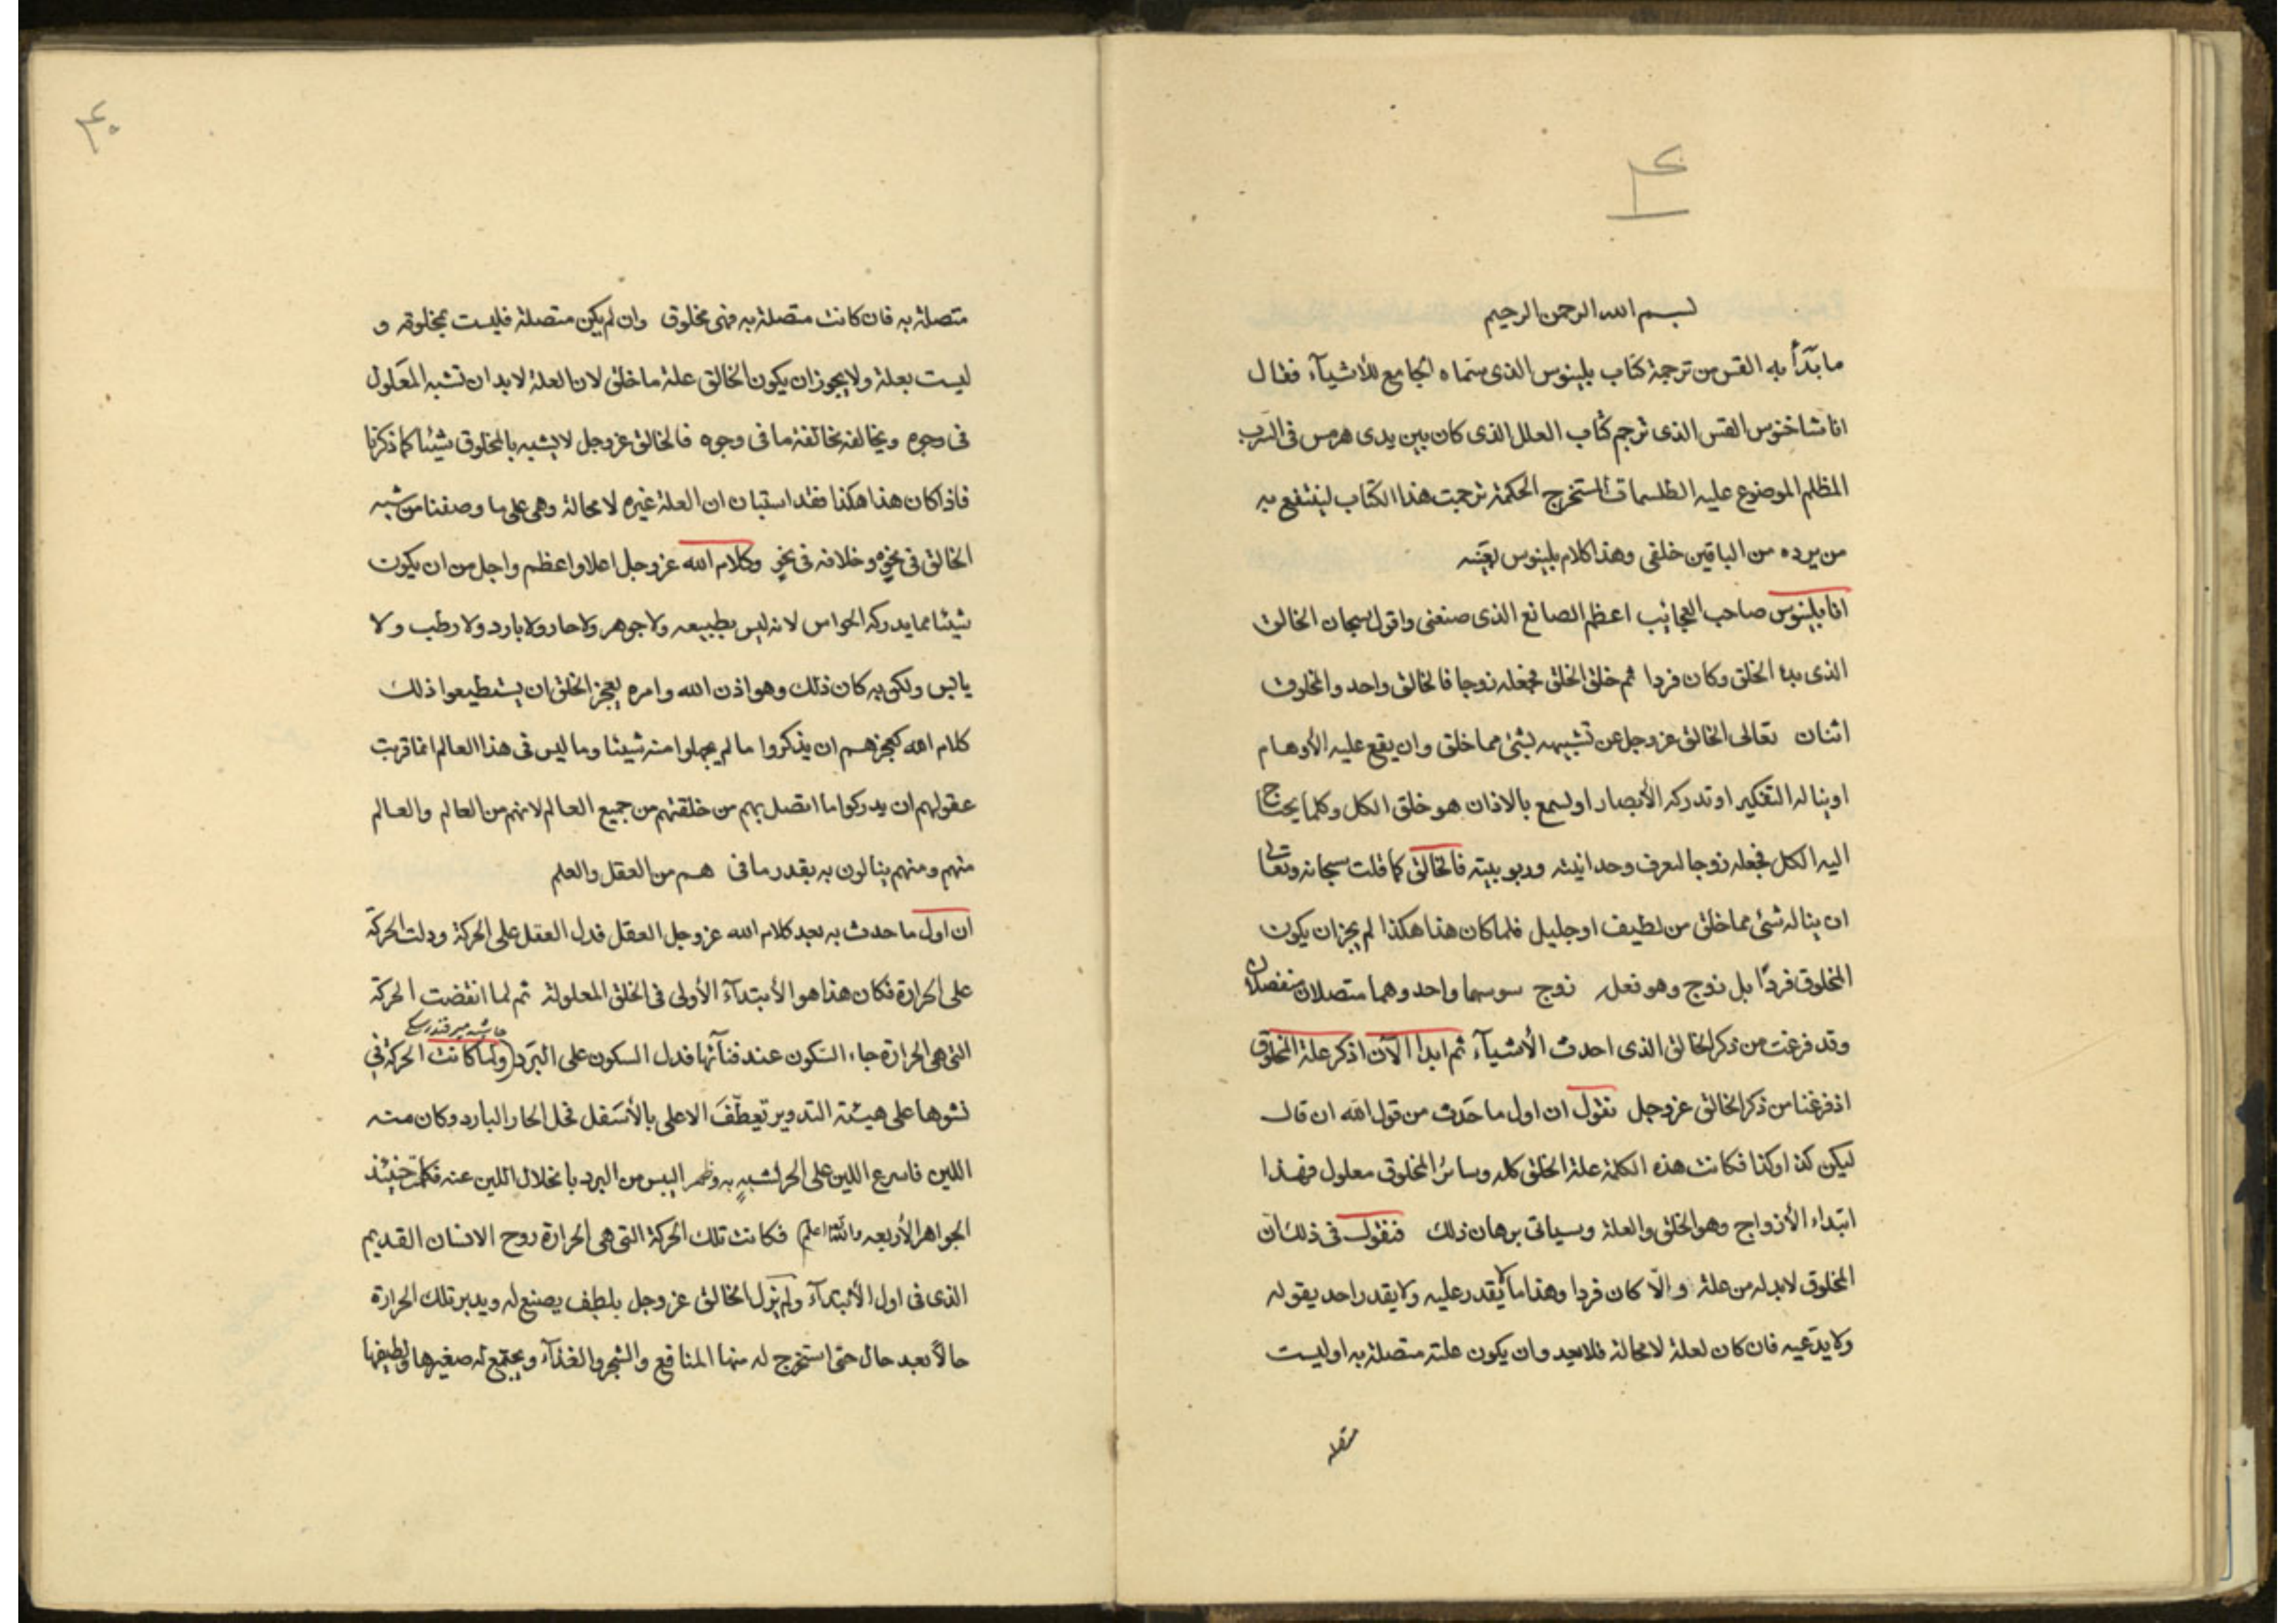 ۴
بسم الله الرحمن الرحيم
ما بدأ به القس من ترجمة كتاب بلينوس الذى سماه الجامع للأشيآء فقال
انا شاخنوس القس الذى ترجم كتاب العلل الذى كان بين يدى هرمس فى السرب
المظلم الموضوع عليه الطلسمات المستخرج الحكمة ترجمت هذا الكتاب لينتفع به
من يرده من الباقين خلفى وهذا كلام بلينوس بعينه
انا بلينوس صاحب العجايب اعظم الصانع الذى صنعنى واقول سبحان الخالق
الذى بدء الخلق وكان فردا ثم خلق الخلق فجعله زوجا فالخالق واحد والمخلوق
اثنان تعالى الخالق عز وجل عن تشبيهه بشئ مما خلق وان يقع عليه الأوهام
او يناله التفكير او تدركه الأبصار او يسمع بالاذان هو خلق الكل وكلما يحتاج
اليه الكل فجعله زوجا لتعرف وحدانيته وربوبيته فالخالق كما قلت سبحانه وتعالى
ان يناله شئ مما خلق من لطيف او جليل فلما كان هذا هكذا لم يجز ان يكون
المخلوق فردًا بل زوج وهو نعل زوج سوسهما واحد وهما متصلان منفصلان
وقد فرغت من ذكر الخالق الذى احدث الأشيآء ثم ابدا الآن اذكر علة المخلوق
اذ فرغنا من ذكر الخالق عز وجل نقول ان اول ما حدث من قول الله ان قال
ليكن كذا وكذا فكانت هذه الكلمة علة الخلق كله وسائر المخلوق معلول فهذا
ابتداء الأزواج وهو الخلق والعلة وسياتى برهان ذلك فنقول فى ذلك ان
المخلوق لابد له من علة والّا كان فردا وهذا ما لا يقدر عليه ولا يقدر احد يقوله
ولا يدعيه فان كان لعلة لا محالة فلابد وان يكون علته متصلة به او ليست
متصلة
۴۰
متصلة به فان كانت متصلة به فهى مخلوق وان لم يكن متصلة فليست بمخلوقه و
ليست بعلة ولا يجوز ان يكون الخالق علة ما خلق لان العلة لابد ان تشبه المعلول
فى وجوه ويخالفه مخالفة ما فى وجوه فالخالق عز وجل لا يشبه بالمخلوق شيئا كما ذكرنا
فاذا كان هذا هكذا فقد استبان ان العلة غيره لا محالة وهى على ما وصفنا من شبه
الخالق فى نحو وخلافه فى نحو وكلام الله عز وجل اعلا واعظم واجل من ان يكون
شيئا مما يدركه الحواس لانه ليس بطبيعه ولا جوهر ولا حار ولا بارد ولا رطب ولا
يابس ولكن به كان ذلك وهو اذن الله وامره يعجز الخلق ان يستطيعوا ذلك
كلام الله كعجزهم ان يذكروا ما لم يجهلوا منه شيئا وما ليس فى هذا العالم انما قربت
عقولهم ان يدركوا ما اتصل بهم من خلقتهم من جميع العالم لانهم من العالم والعالم
منهم ومنهم ينالون به بقدر ما فى هم من العقل والعلم
ان اول ما حدث به بعد كلام الله عز وجل العقل فدل العقل على الحركة ودلت الحركة
على الحرارة فكان هذا هو الأبتدآء الأولى فى الخلق المعلولة ثم لما انقضت الحركة
حاشيه مير فندرسكى
التى هى الحرارة جاء السكون عند فنآئها فدل السكون على البرد (ولما كانت الحركة فى
نشوها على هيئة التدوير تعطّف الاعلى بالأسفل نحل الحار البارد وكان منه
اللين فاسرع اللين على الحر لشبهه به وظهر اليبس من البرد بانحلال اللين عنه فكملت حينئذ
الجواهر الأربعه والله اعلم) فكانت تلك الحركة التى هى الحرارة روح الانسان القديم
الذى فى اول الأبتدآء ولم يزل الخالق عز وجل بلطف يصنع له ويدبر تلك الحرارة
حالاً بعد حال حتى استخرج له منها المنافع والشجر والغذآء ويجتمع له صغيرها ولطيفها